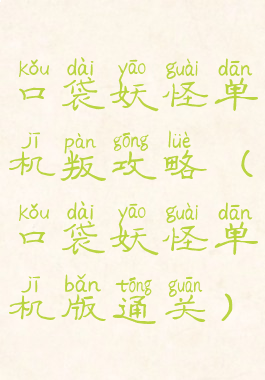 kǒu dài yāo guài dān
口袋妖怪单
jī pàn gōng lüè
机叛攻略（
kǒu dài yāo guài dān
口袋妖怪单
jī bǎn tōng guān
机版通关）